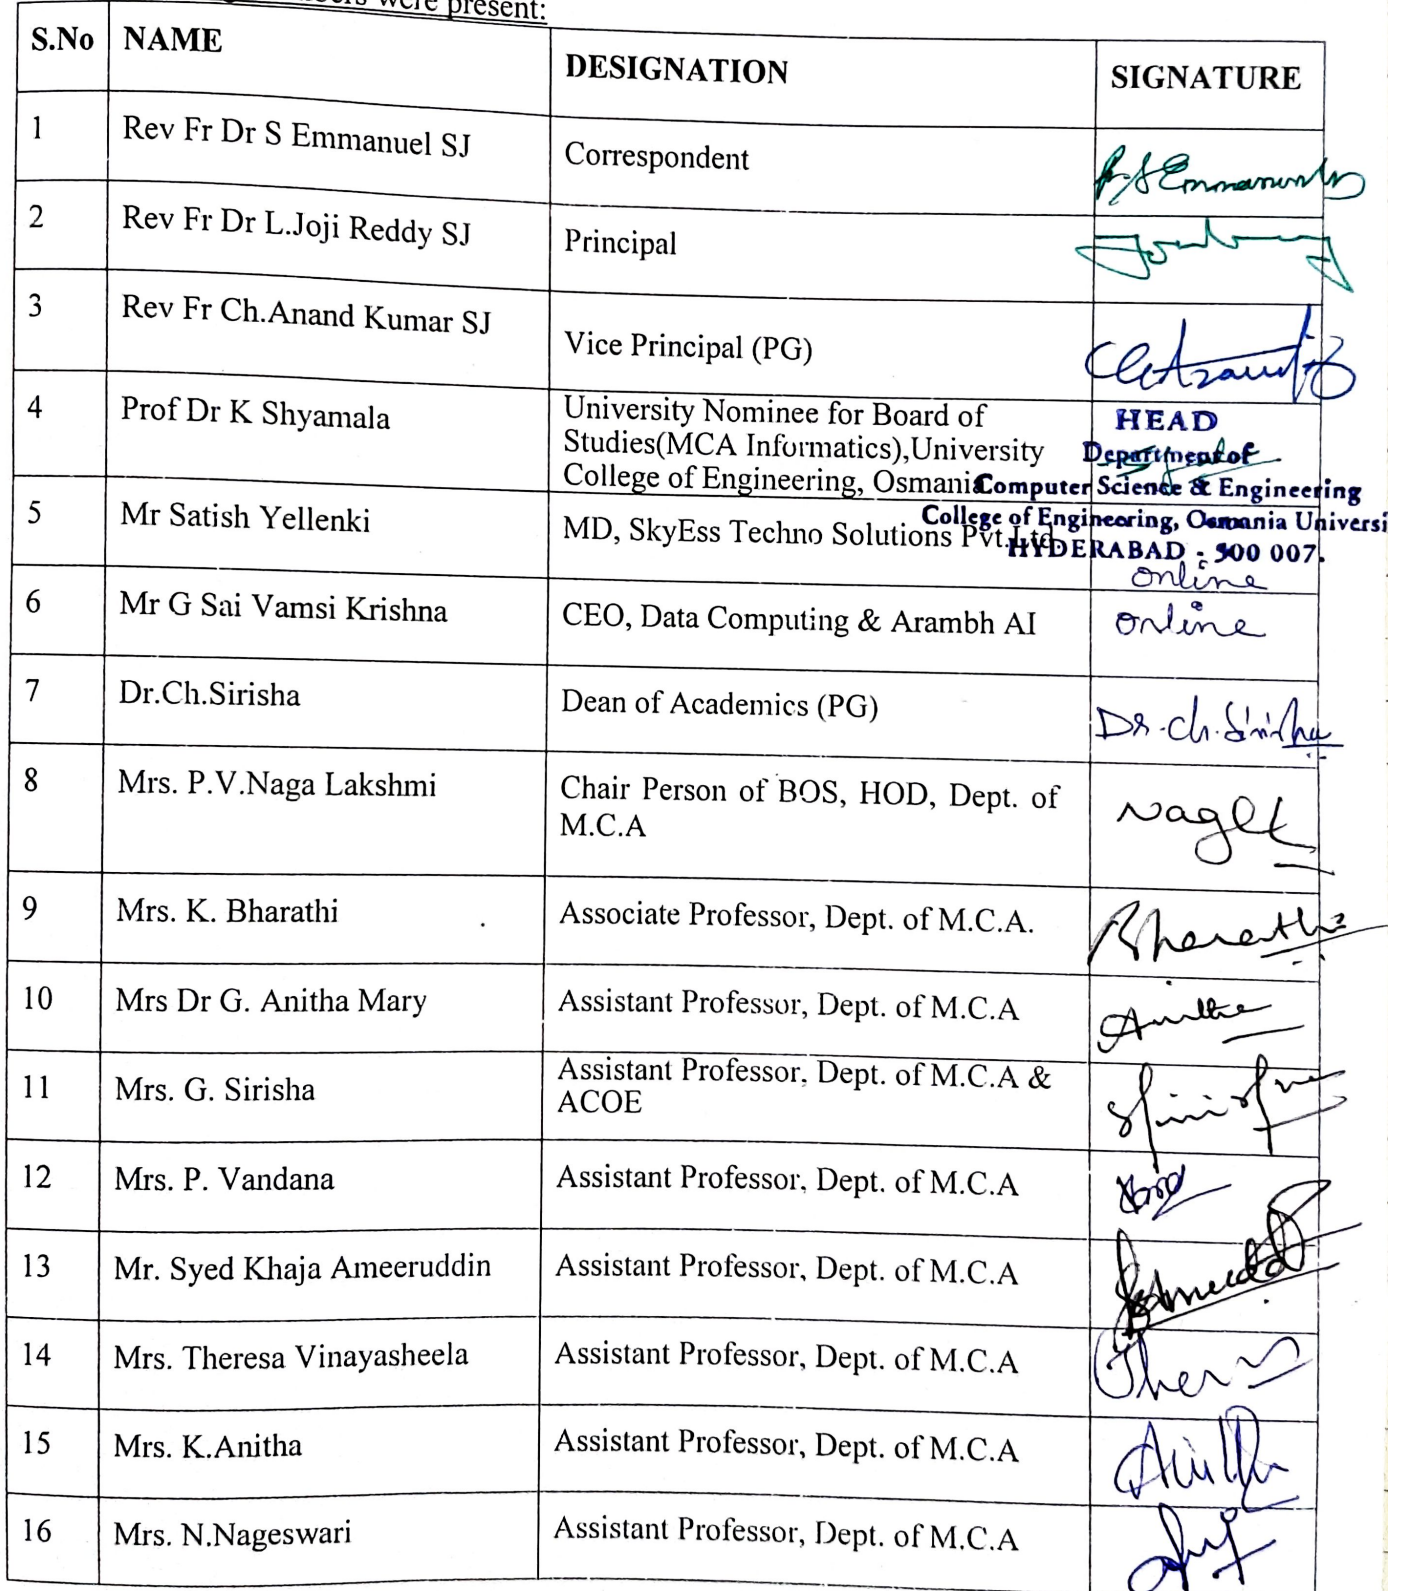 were present:
S.No NAME DESIGNATION SIGNATURE
1 Rev Fr Dr S Emmanuel SJ Correspondent
2 Rev Fr Dr L.Joji Reddy SJ Principal
3 Rev Fr Ch.Anand Kumar SJ Vice Principal (PG)
4 Prof Dr K Shyamala University Nominee for Board of
Studies(MCA Informatics),University
College of Engineering, Osmania
HEAD
Department of
Computer Science & Engineering
College of Engineering, Osmania Universi
HYDERABAD - 500 007.
5 Mr Satish Yellenki MD, SkyEss Techno Solutions Pvt.Ltd online
6 Mr G Sai Vamsi Krishna CEO, Data Computing & Arambh AI online
7 Dr.Ch.Sirisha Dean of Academics (PG) Dr.Ch.Sirisha
8 Mrs. P.V.Naga Lakshmi Chair Person of BOS, HOD, Dept. of
M.C.A
9 Mrs. K. Bharathi Associate Professor, Dept. of M.C.A. Bharathi
10 Mrs Dr G. Anitha Mary Assistant Professor, Dept. of M.C.A
11 Mrs. G. Sirisha Assistant Professor, Dept. of M.C.A &
ACOE
12 Mrs. P. Vandana Assistant Professor, Dept. of M.C.A
13 Mr. Syed Khaja Ameeruddin Assistant Professor, Dept. of M.C.A
14 Mrs. Theresa Vinayasheela Assistant Professor, Dept. of M.C.A
15 Mrs. K.Anitha Assistant Professor, Dept. of M.C.A
16 Mrs. N.Nageswari Assistant Professor, Dept. of M.C.A